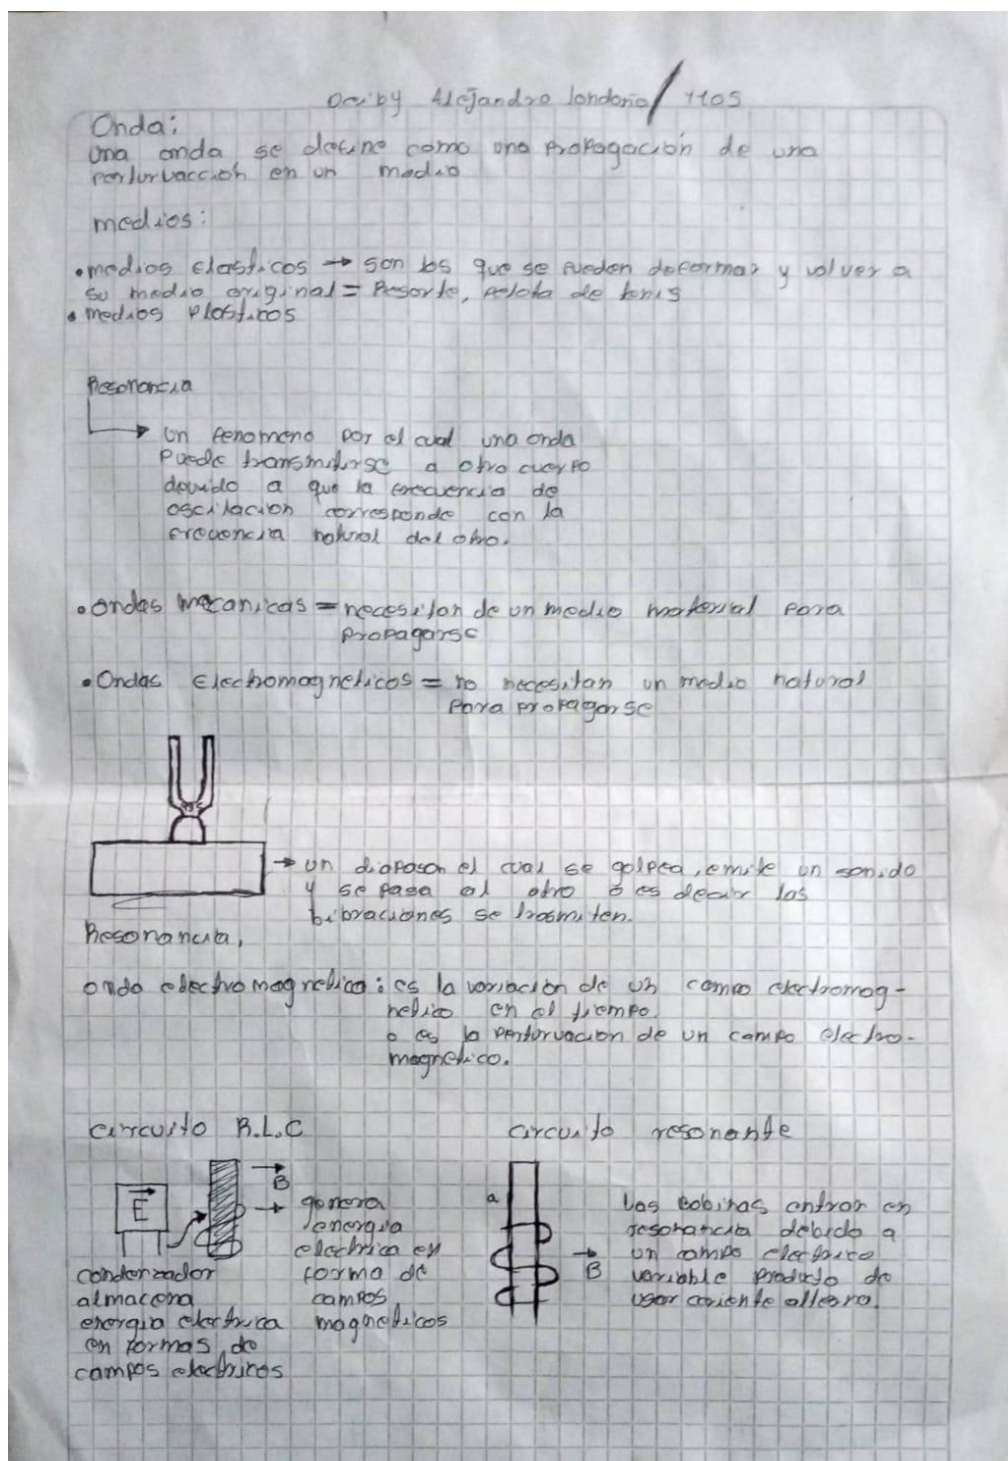 Alejandro londoño / 1105
Onda:
una onda se define como una propagación de una
perturvacción en un medio
medios:
• medios elasticos → son los que se pueden deformar y volver a
su medio original = Resorte, pelota de tenis
• medios plasticos
Resonancia
un fenomeno por el cual una onda
puede transmitirse a otro cuerpo
devido a que la frecuencia de
oscilacion corresponde con la
frecuencia natural del otro.
• ondas mecanicas = necesitan de un medio material para
propagarse
• Ondas electromagneticas = no necesitan un medio natural
para propagarse
→ un diapason el cual se golpea, emite un sonido
y se pasa al otro o es decir las
bibraciones se trasmiten.
Resonancia,
onda electromagnetica: es la variación de un campo electromag-
netico en el tiempo.
o es la perturvacion de un campo electro-
magnetico.
circuito R.L.C
circuito resonante
E
B
→ genera
energia
electrica en
forma de
campos
magneticos
condenzador
almacena
energia electrica
en formas de
campos electricos
a
B
Las bobinas entran en
resonancia debido a
un campo electrico
variable producto de
usar coriente